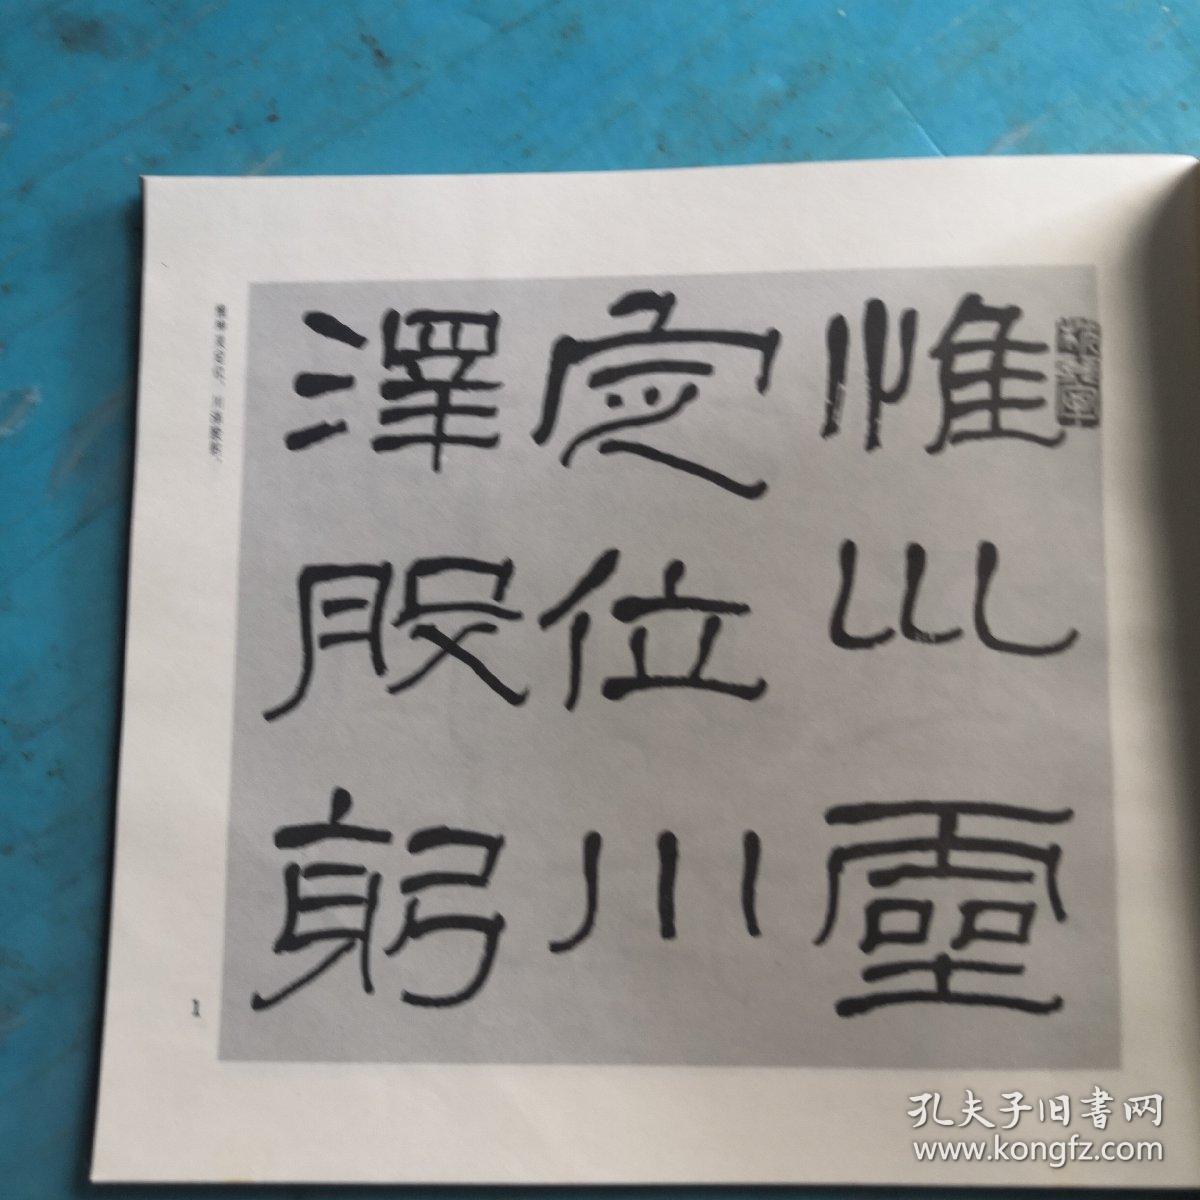 惟巛靈
定位川
澤股躬
惟坤灵定位，川泽股躬，
1
孔夫子旧书网
www.kongfz.com